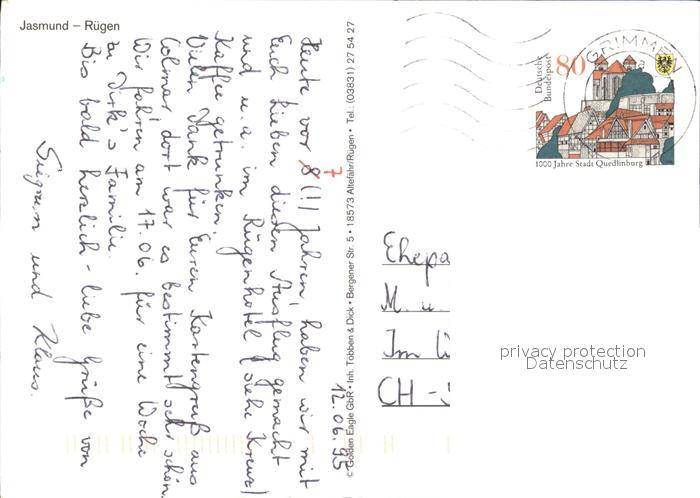 Jasmund – Rügen
12.06.95
Heute vor 8 (!) Jahren, haben wir mit
7
Euch Lieben diesen Ausflug gemacht
und u.a. im Rügenhotel (siehe Kreuz)
Kaffee getrunken.
Vielen Dank für Euren Kartengruß aus
Colmar, dort war es bestimmt sehr schön.
Wir fahren am 17.06. für eine Woche
zu Dirk's Familie.
Bis bald herzlich-liebe Grüße von
Siegrun und Klaus.
© Golden Eagle GbR • Inh. Tobben & Dick • Bergener Str. 5 • 18573 Altefähr/Rügen • Tel.: (03831) 27 54 27
GRIMMEN
a
Deutsche
Bundespost
80
1000 Jahre Stadt Quedlinburg
Ehepa
M. u.
Im
CH -
privacy protection
Datenschutz